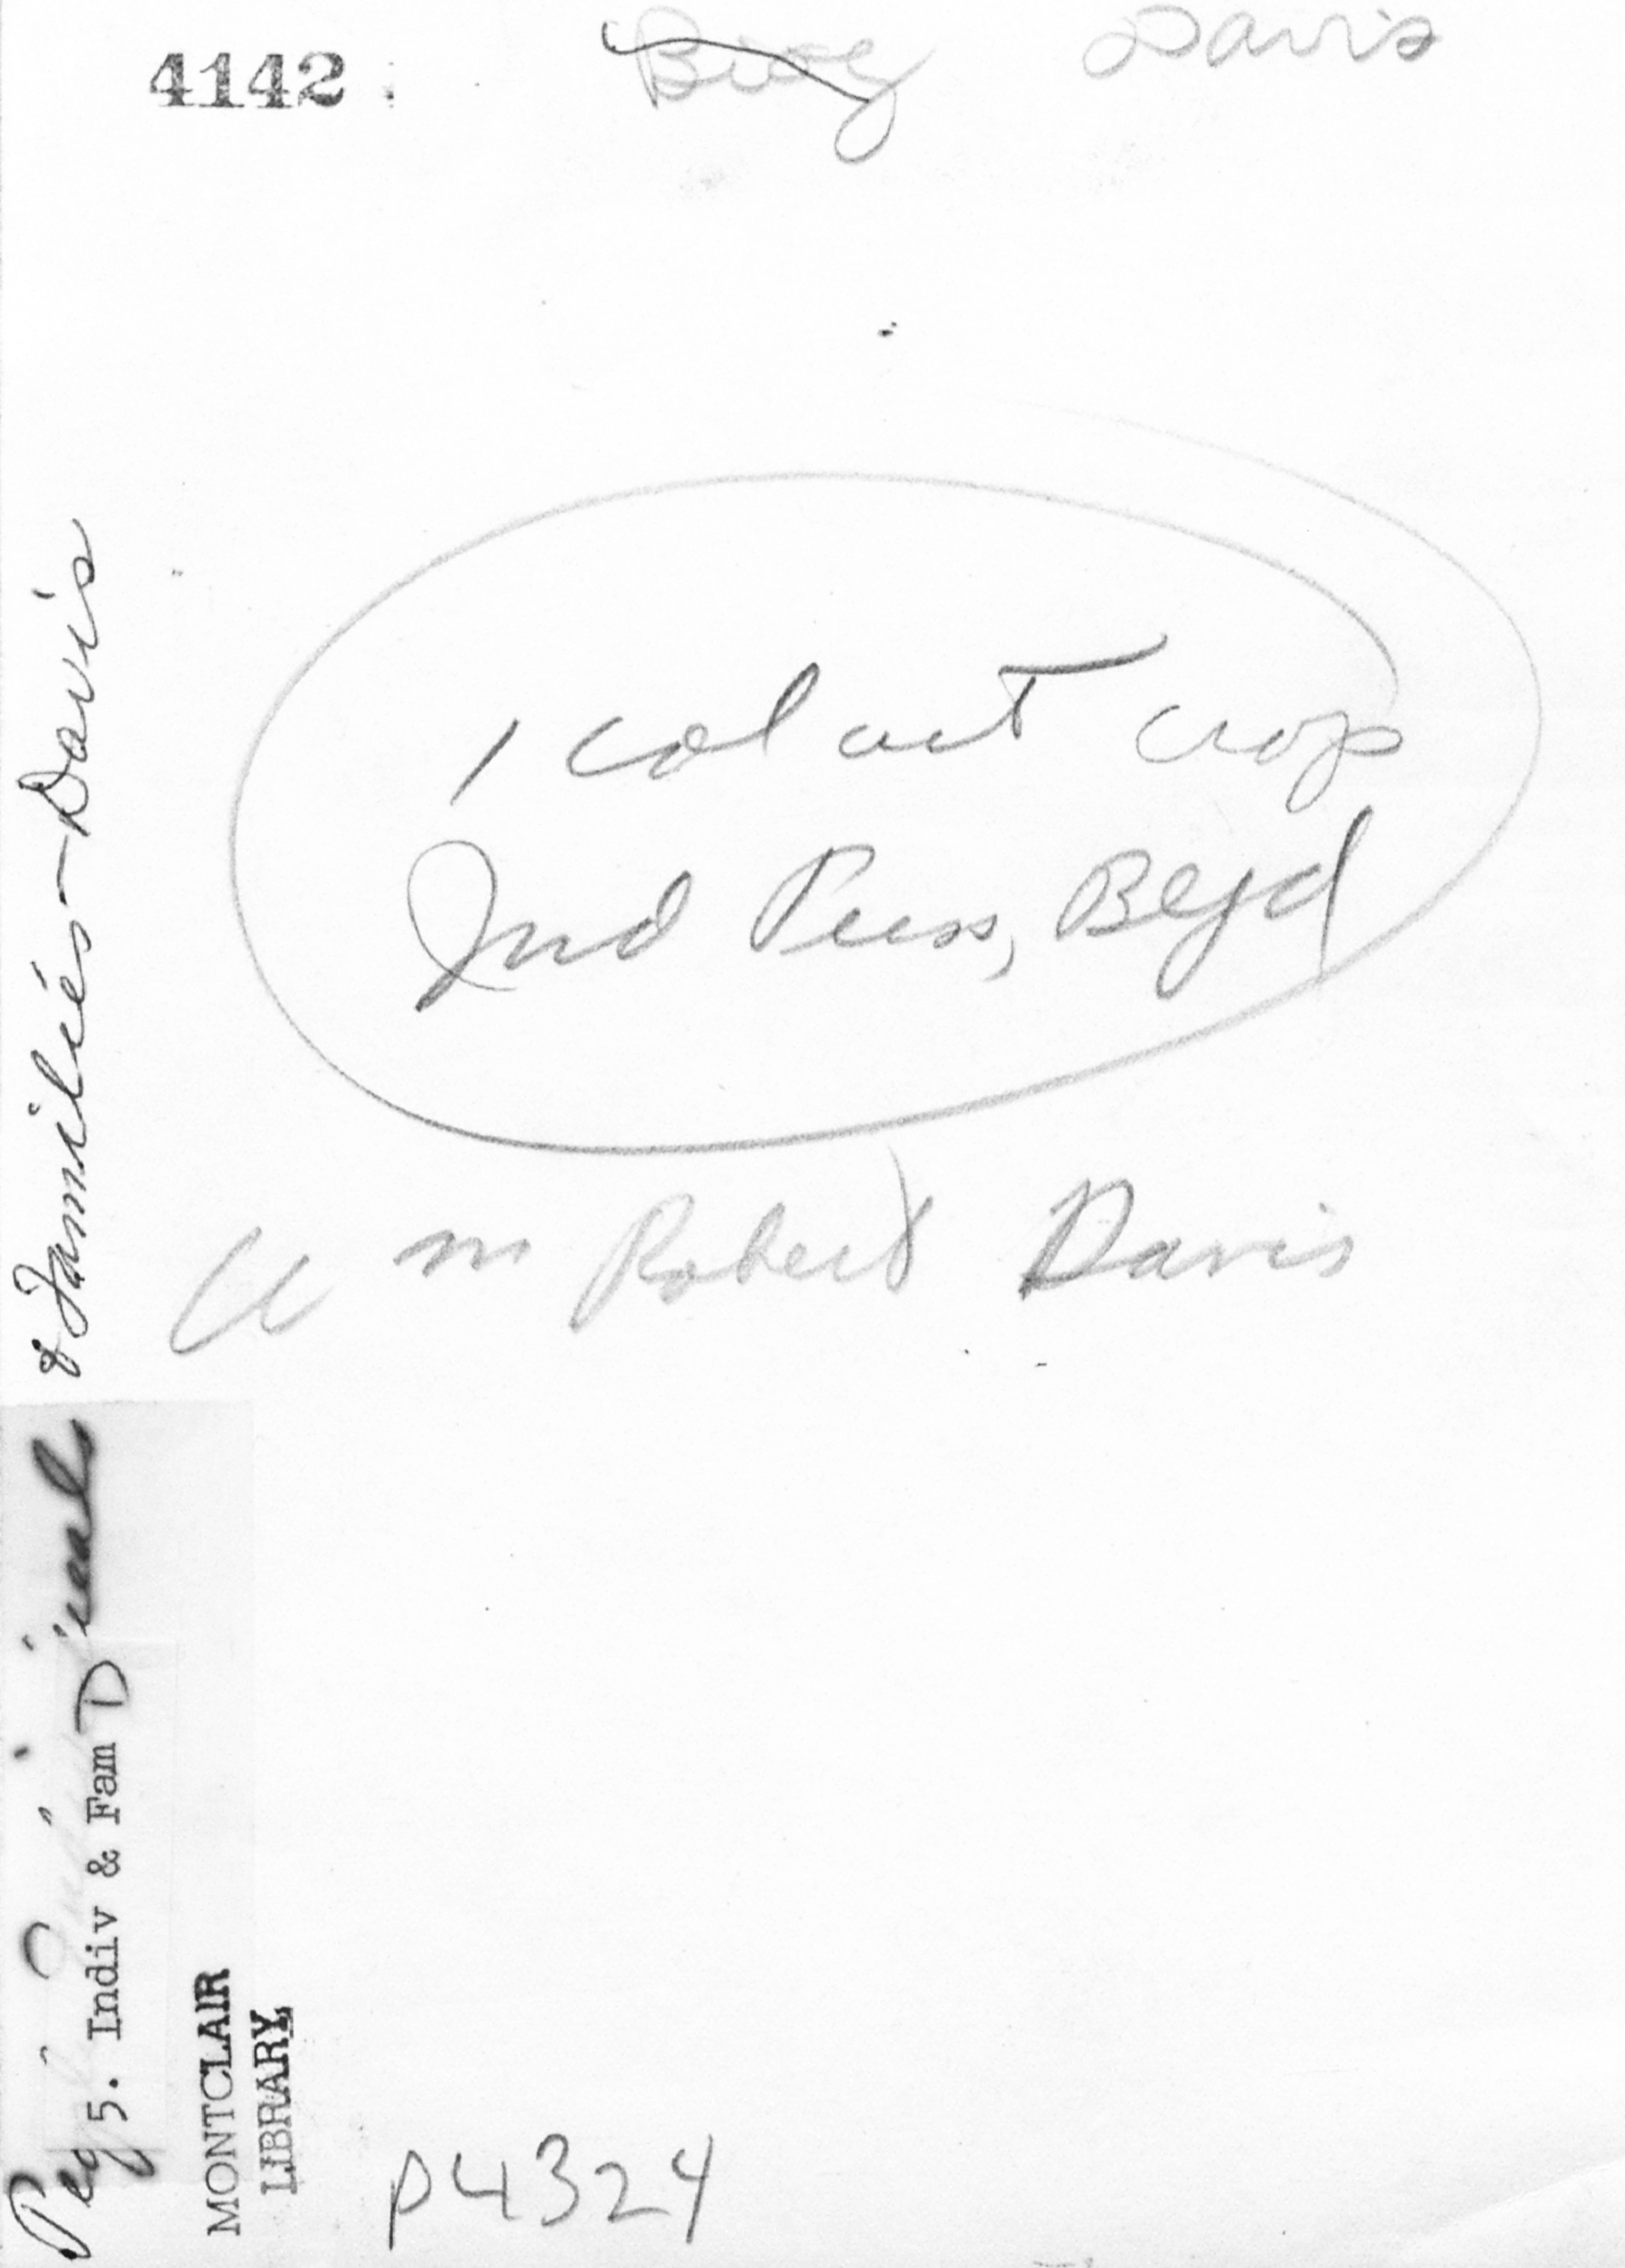 4142
Biog Davis
1 col cut crop
Ind Press, Blfd
Wm Robert Davis
& Families-Davis
5. Indiv & Fam D
MONTCLAIR
LIBRARY
P4324